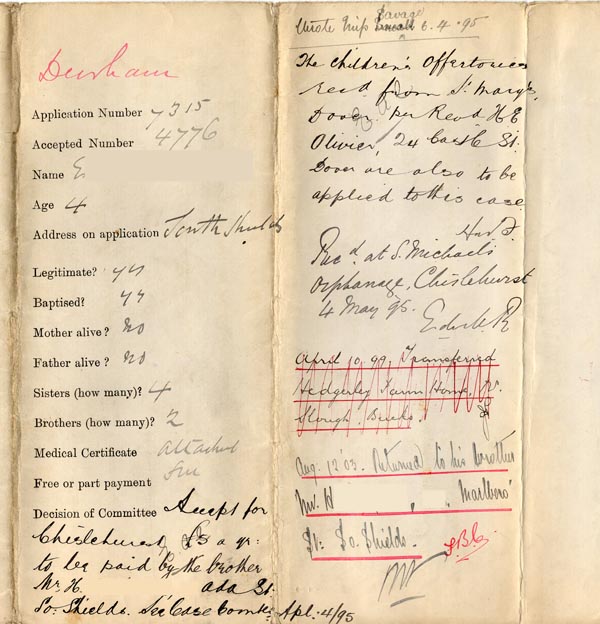 Durham
Application Number 7315
Accepted Number 4776
Name E
Age 4
Address on application South Shields
Legitimate? yes
Baptised? yes
Mother alive? no
Father alive? no
Sisters (how many)? 4
Brothers (how many)? 2
Medical Certificate attached
Free or part payment free
Decision of Committee Accept for
Chislehurst, £5 a yr:
to be paid by the brother
Mr. H. Ada St.
So. Shields. See Case Comtee Apl. 4/95
Wrote Miss Savage 6.4.95
The Children's Offertories
recd from St. Mary's,
Dover, per Revd H E
Olivier, 24 Castle St.
Dover are also to be
applied to this case
Recd at S. Michael's
Orphanage, Chislehurst
4 May 95.
April 10. 99. Transferred
Hedgerley Farm Home, Nr.
Slough. Bucks.
Aug. 12 '03. Returned to his brother
Mr. H , Marlboro'
St: So. Shields.